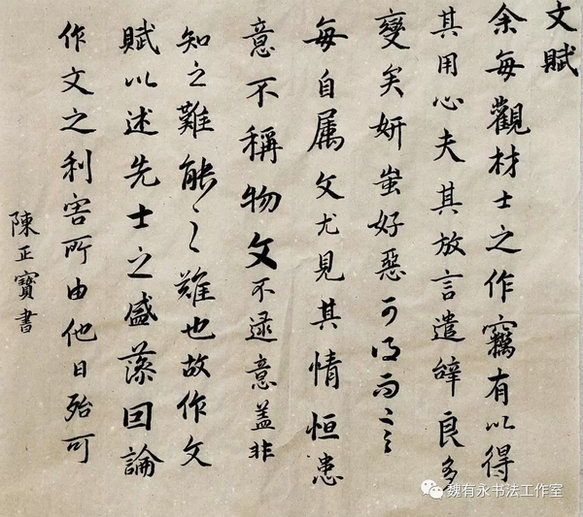 文賦
余每觀材士之作竊有以得
其用心夫其放言遣辝良多
變矣妍蚩好惡可得而言
每自属文尤見其情恒患
意不稱物文不逮意蓋非
知之難能之難也故作文
賦以述先士之盛藻因論
作文之利害所由他日殆可
陳正寶書
魏有永书法工作室